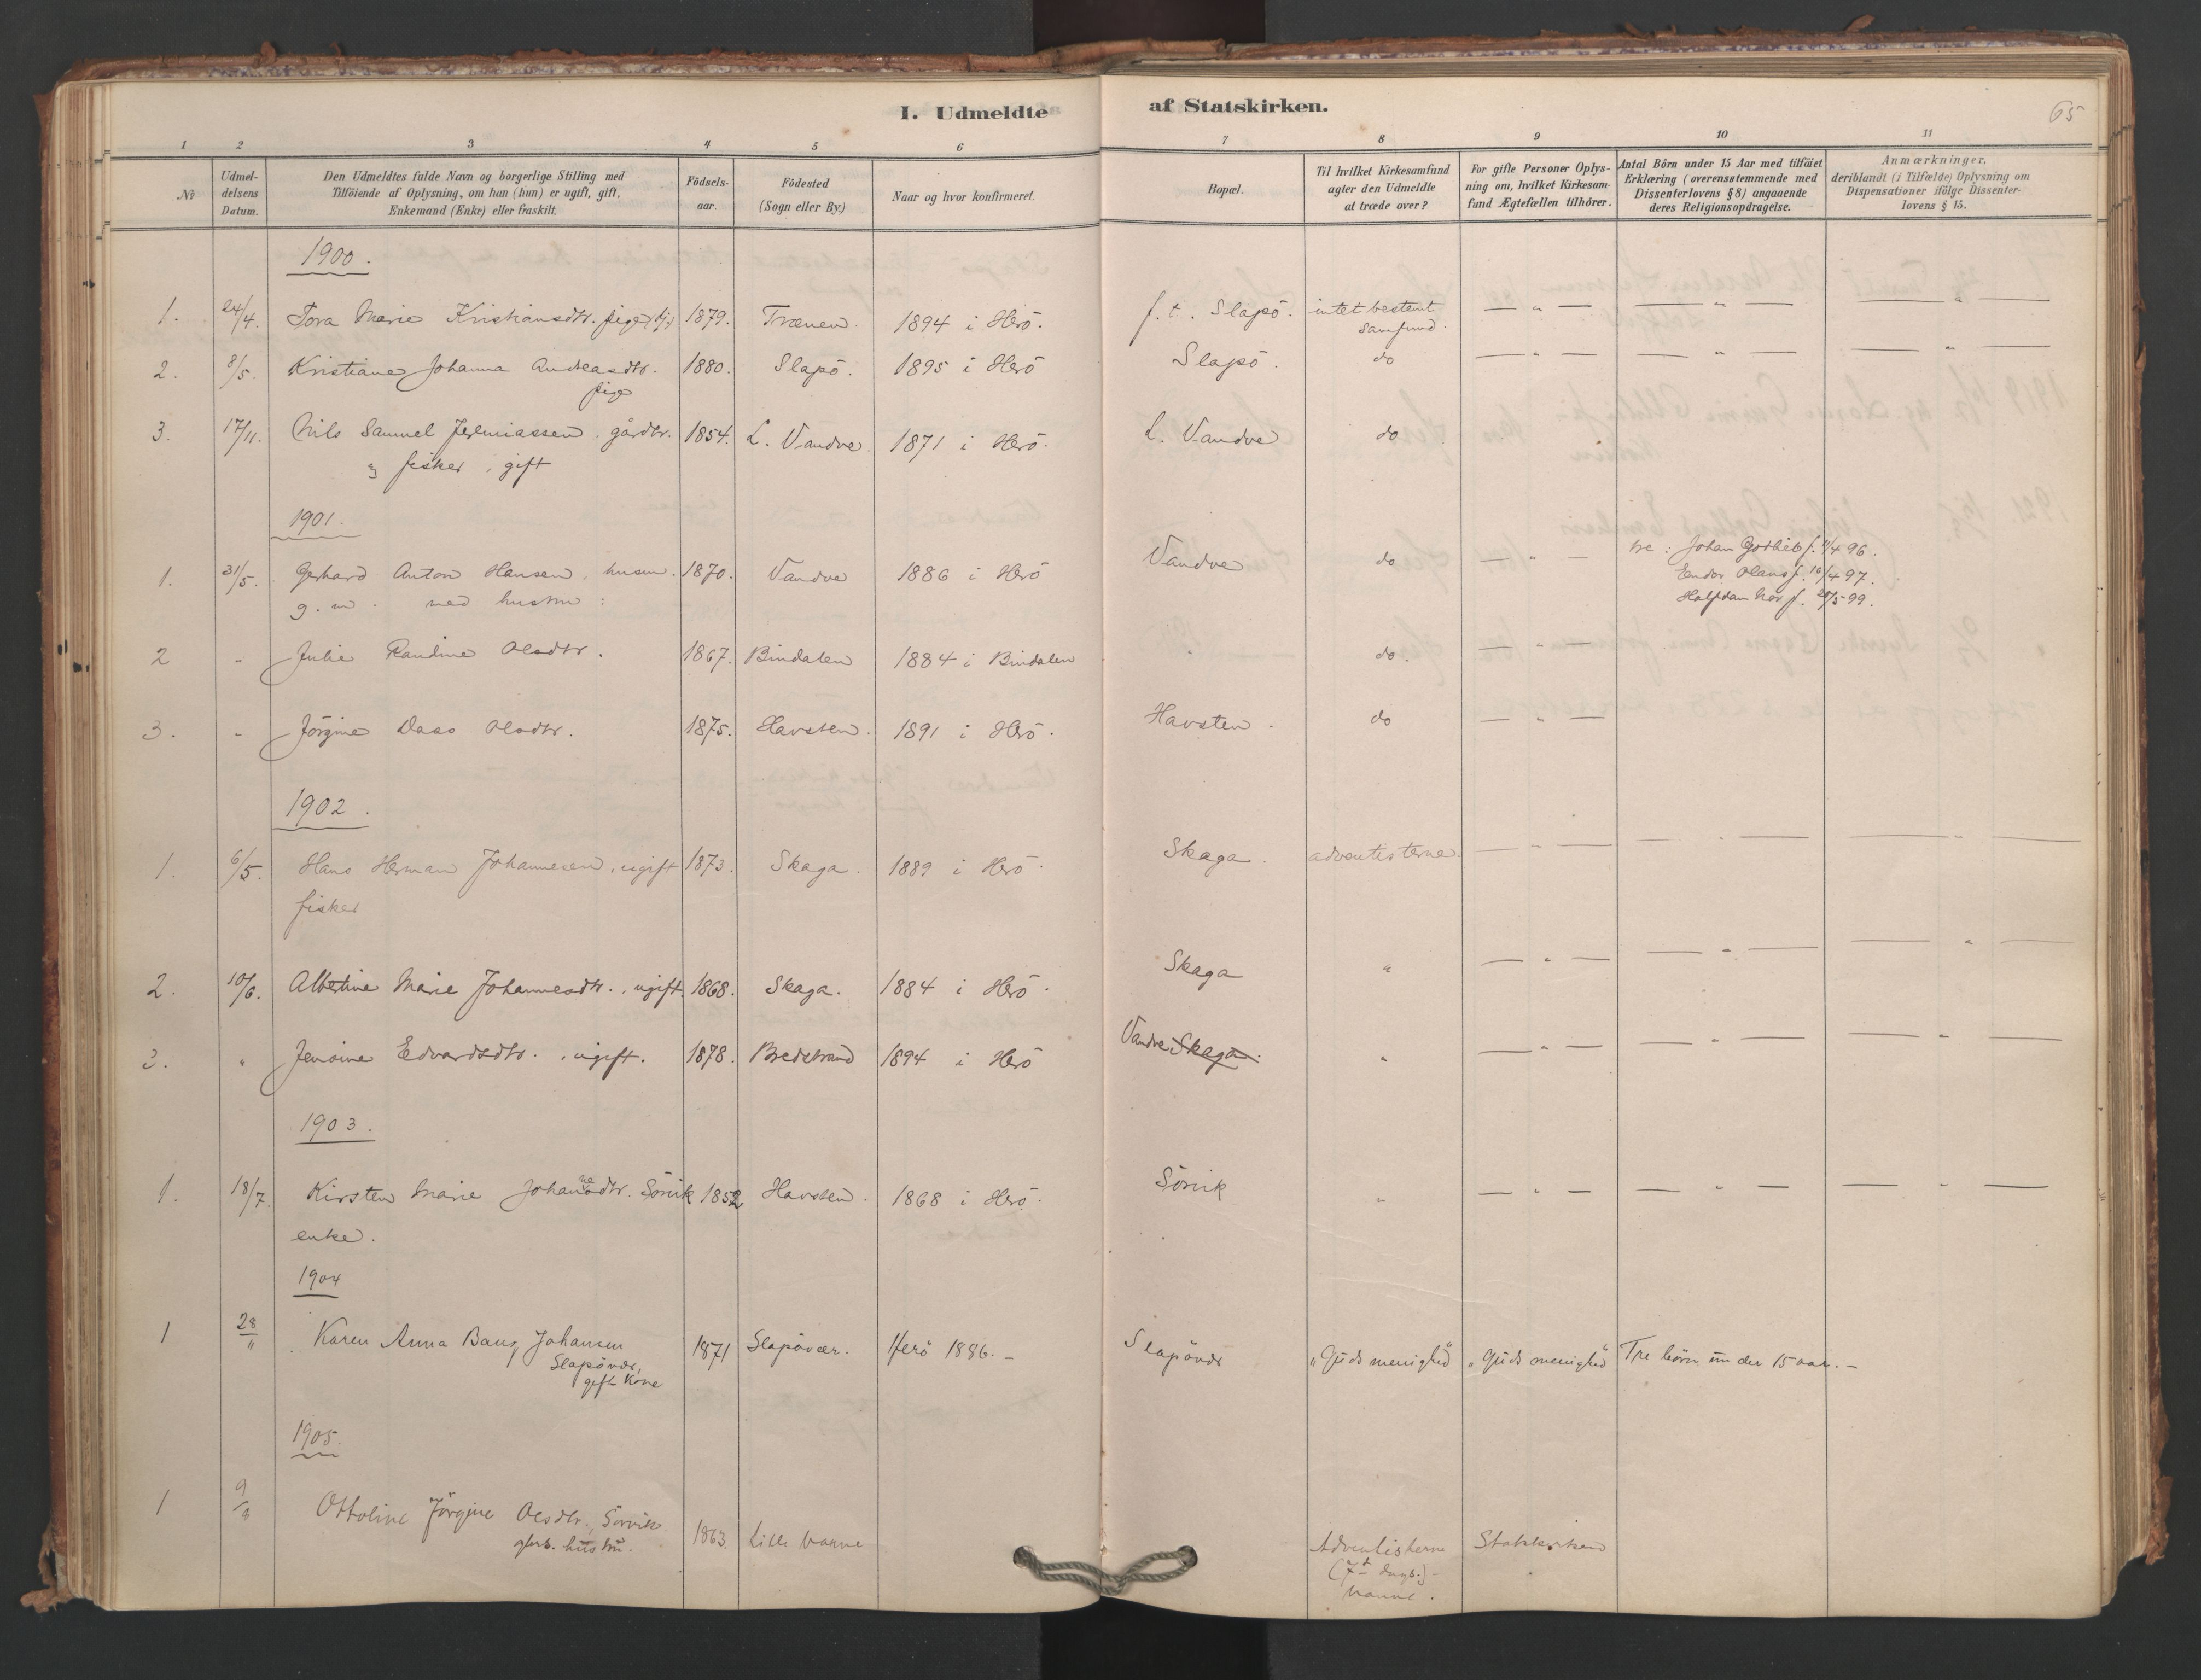 I. Udmeldte af Statskirken.
65
1 2 3 4 5 6 7 8 9 10 11
№
Udmel-
delsens
Datum.
Den Udmeldtes fulde Navn og borgerlige Stilling med
Tilföiende af Oplysning, om han (hun) er ugift, gift,
Enkemand (Enke) eller fraskilt.
Födsels-
aar.
Födested
(Sogn eller By.)
Naar og hvor konfirmeret.
Bopæl.
Til hvilket Kirkesamfund
agter den Udmeldte
at træde over?
For gifte Personer Oplys-
ning om, hvilket Kirkesam-
fund Ægtefællen tilhörer.
Antal Börn under 15 Aar med tilföiet
Erklæring (overensstemmende med
Dissenterlovens § 8) angaaende
deres Religionsopdragelse.
Anmærkninger,
deriblandt (i Tilfælde) Oplysning om
Dispensationer ifölge Dissenter-
lovens § 15.
1900.
1. 24/4. Tora Marie Kristiansdtr. pige, 1879. Trænen. 1894 i Herö. f. t. Slapö. intet bestemt — " — — " — — " —
samfund.
2. 8/5. Kristiane Johanna Andreasdtr. 1880. Slapö. 1895 i Herö Slapö. do — " — — " — — " —
pige
3. 17/11. Nils Samuel Jeremiassen. gårdbr. 1854. L. Vandve. 1871 i Herö. L. Vandve do
og fisker, gift
1901.
1. 31/5. Gerhard Anton Hansen, husm. 1870. Vandve 1886 i Herö Vandve do — " — tre: Johan Gotlieb f. 11/4 96.
Endor Olaus f. 16/4 97.
g. m. med hustru:
Halfdan f. 28/5 99.
2 " Julie Randine Olsdtr. 1867. Bindalen 1884 i Bindalen " do. — " —
3. " Jörgine Daso Olsdtr. 1875. Havsten. 1891 i Herö. Havsten. do — " —
1902.
1. 6/5. Hans Herman Johannesen, ugift 1873. Skaga. 1889 i Herö. Skaga. adventisterne. — " — — " — — " —
fisker
2. 10/6. Albertine Marie Johannesdtr., ugift. 1868. Skaga. 1884 i Herö. Skaga " — " — — " — — " —
3. " Jensine Edvardsdtr., ugift. 1878. Bredstrand 1894 i Herö Vandve Skaga. " — " — — " — — " —
1903.
1. 18/7. Kirsten Marie Johannesdtr. Sörvik 1852 Havsten. 1868 i Herö. Sörvik " — " — — " — — " —
enke.
1904
1 28/11 Karen Anna Bang Johansen 1871 Slapövær. Herö 1886.— Slapövær "Guds menighed" "Guds menighed" Tre börn under 15 aar.—
Slapövær,
gift Kone
1905.
1 9/3 Ottoline Jörgine Olsdtr., Sörvik 1863. Lille Vanve Adventisterne Statskirken
hustru.
(7d dags.)—
Vanve.